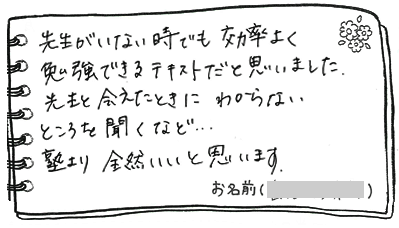 先生がいない時でも 効率よく
勉強できるテキストだと思いました.
先生と会えたときに わからない
ところを 聞くなど…
塾より 全然いいと思います.
お名前( )